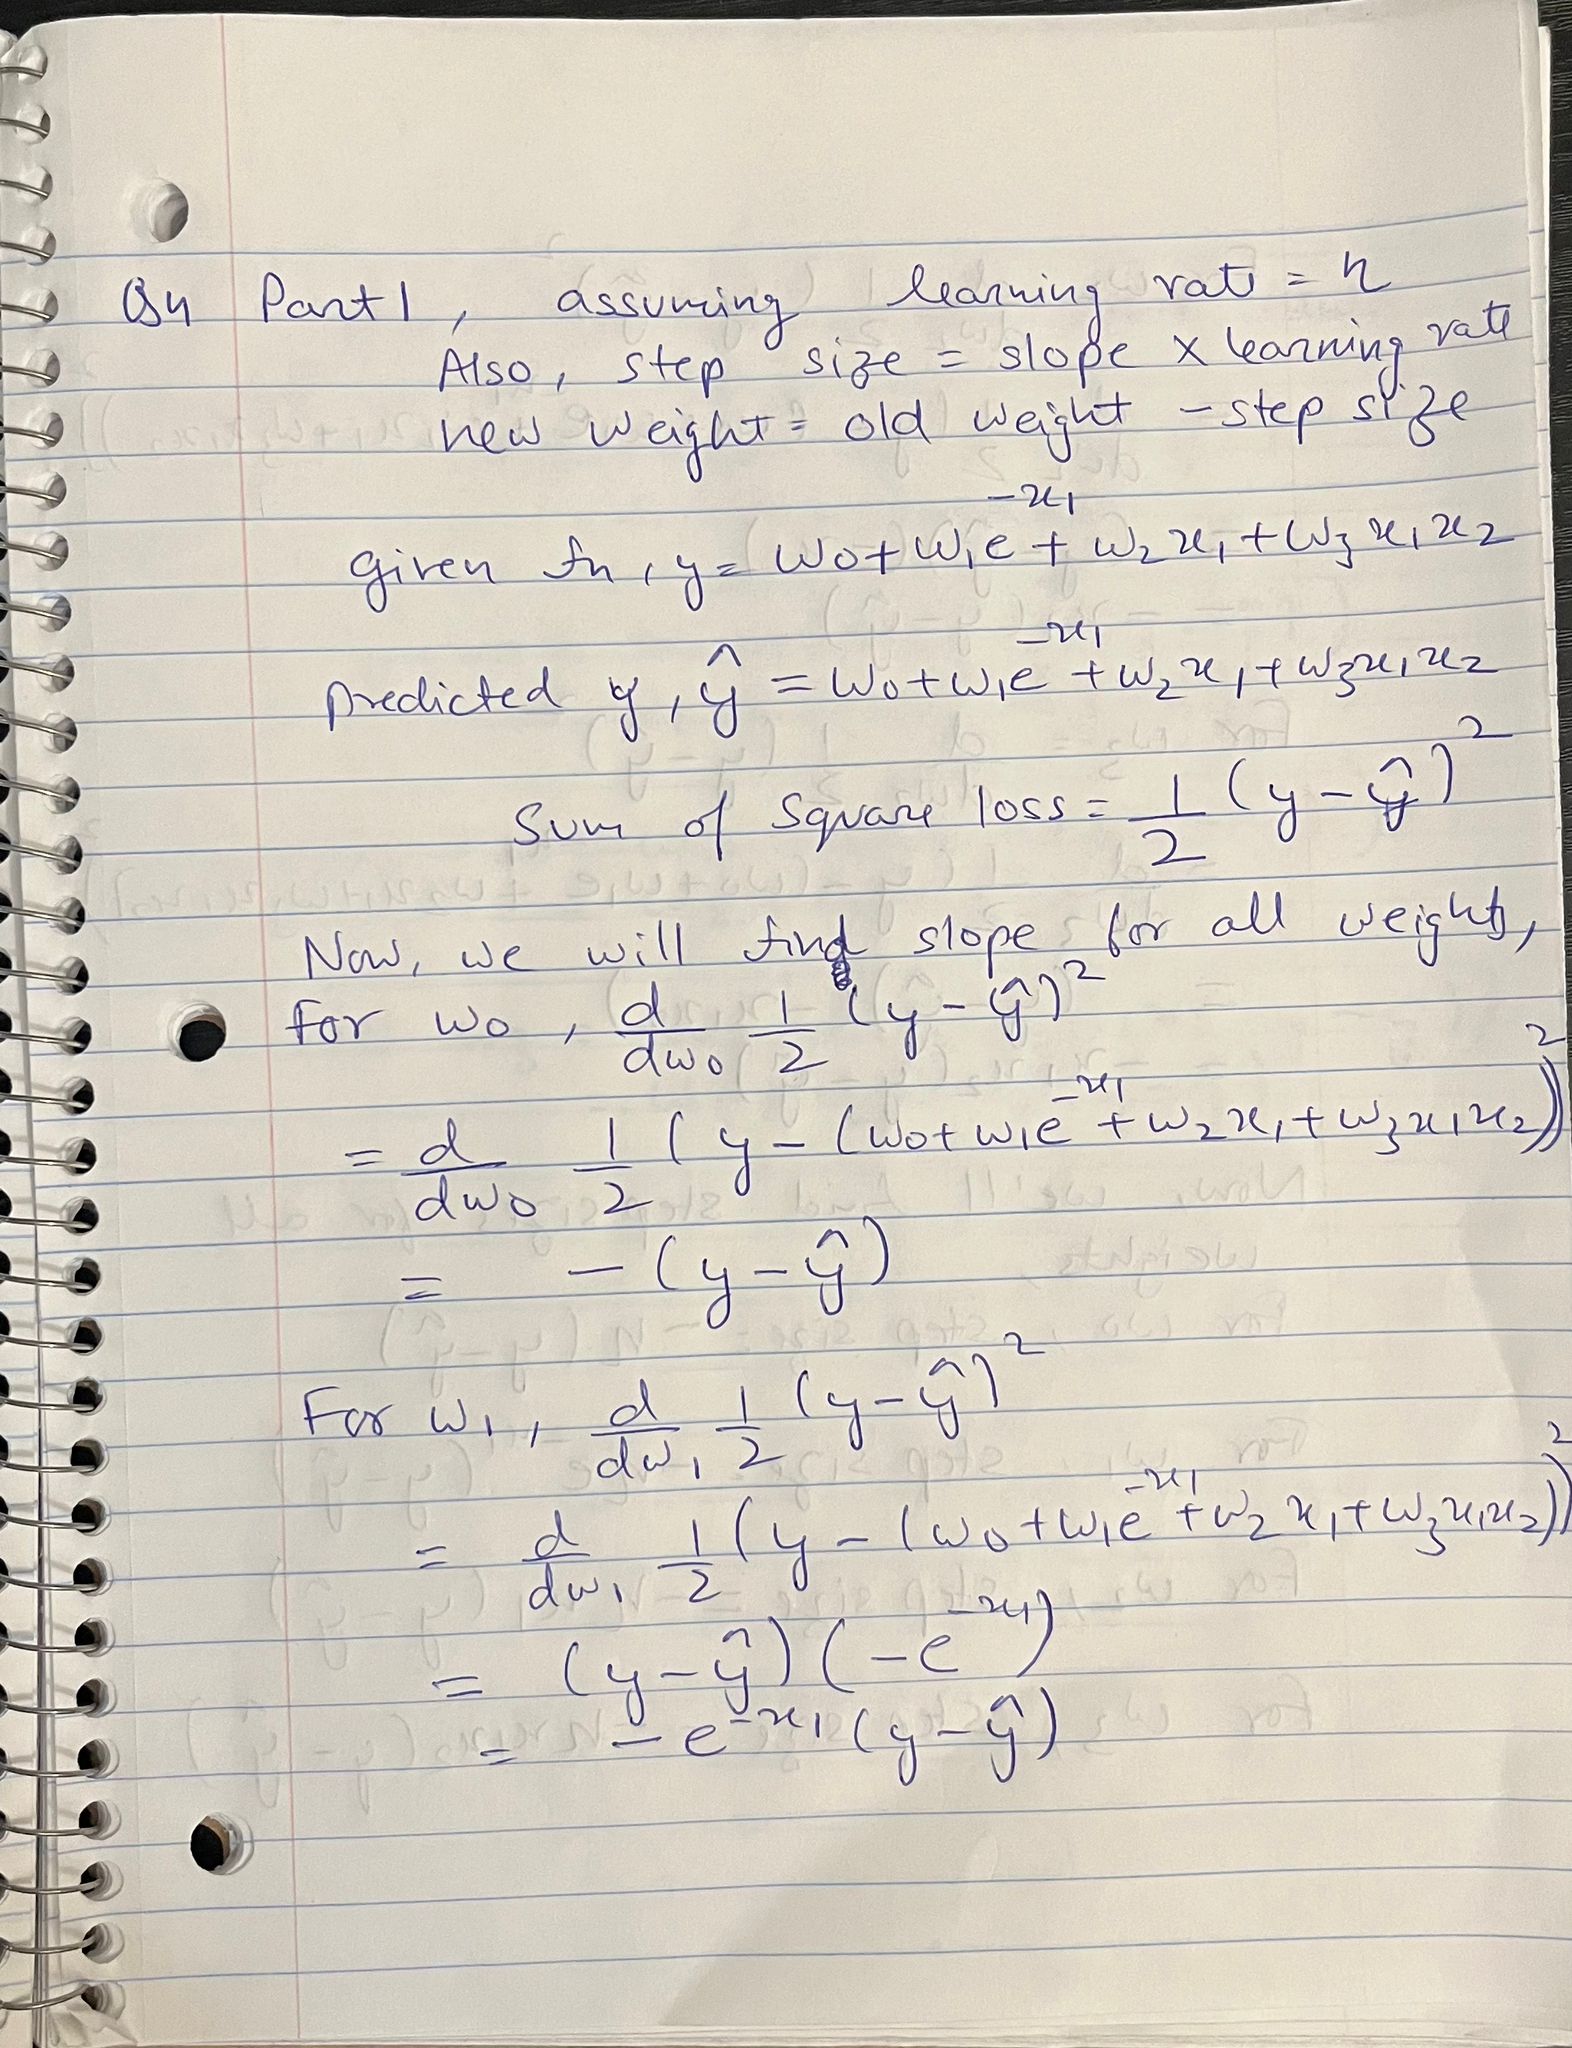 Q4 Part 1, assuming learning rate = η
Also, step size = slope × learning rate
new weight = old weight - step size
given fn, y = w₀ + w₁e^{-x₁} + w₂x₁ + w₃x₁x₂
predicted y, ŷ = w₀ + w₁e^{-x₁} + w₂x₁ + w₃x₁x₂
Sum of square loss = 1/2 (y - ŷ)²
Now, we will find slope for all weights,
for w₀, d/dw₀ 1/2 (y - ŷ)²
= d/dw₀ 1/2 (y - (w₀ + w₁e^{-x₁} + w₂x₁ + w₃x₁x₂))²
= -(y - ŷ)
For w₁, d/dw₁ 1/2 (y - ŷ)²
= d/dw₁ 1/2 (y - (w₀ + w₁e^{-x₁} + w₂x₁ + w₃x₁x₂))²
= (y - ŷ)(-e^{-x₁})
= -e^{-x₁}(y - ŷ)